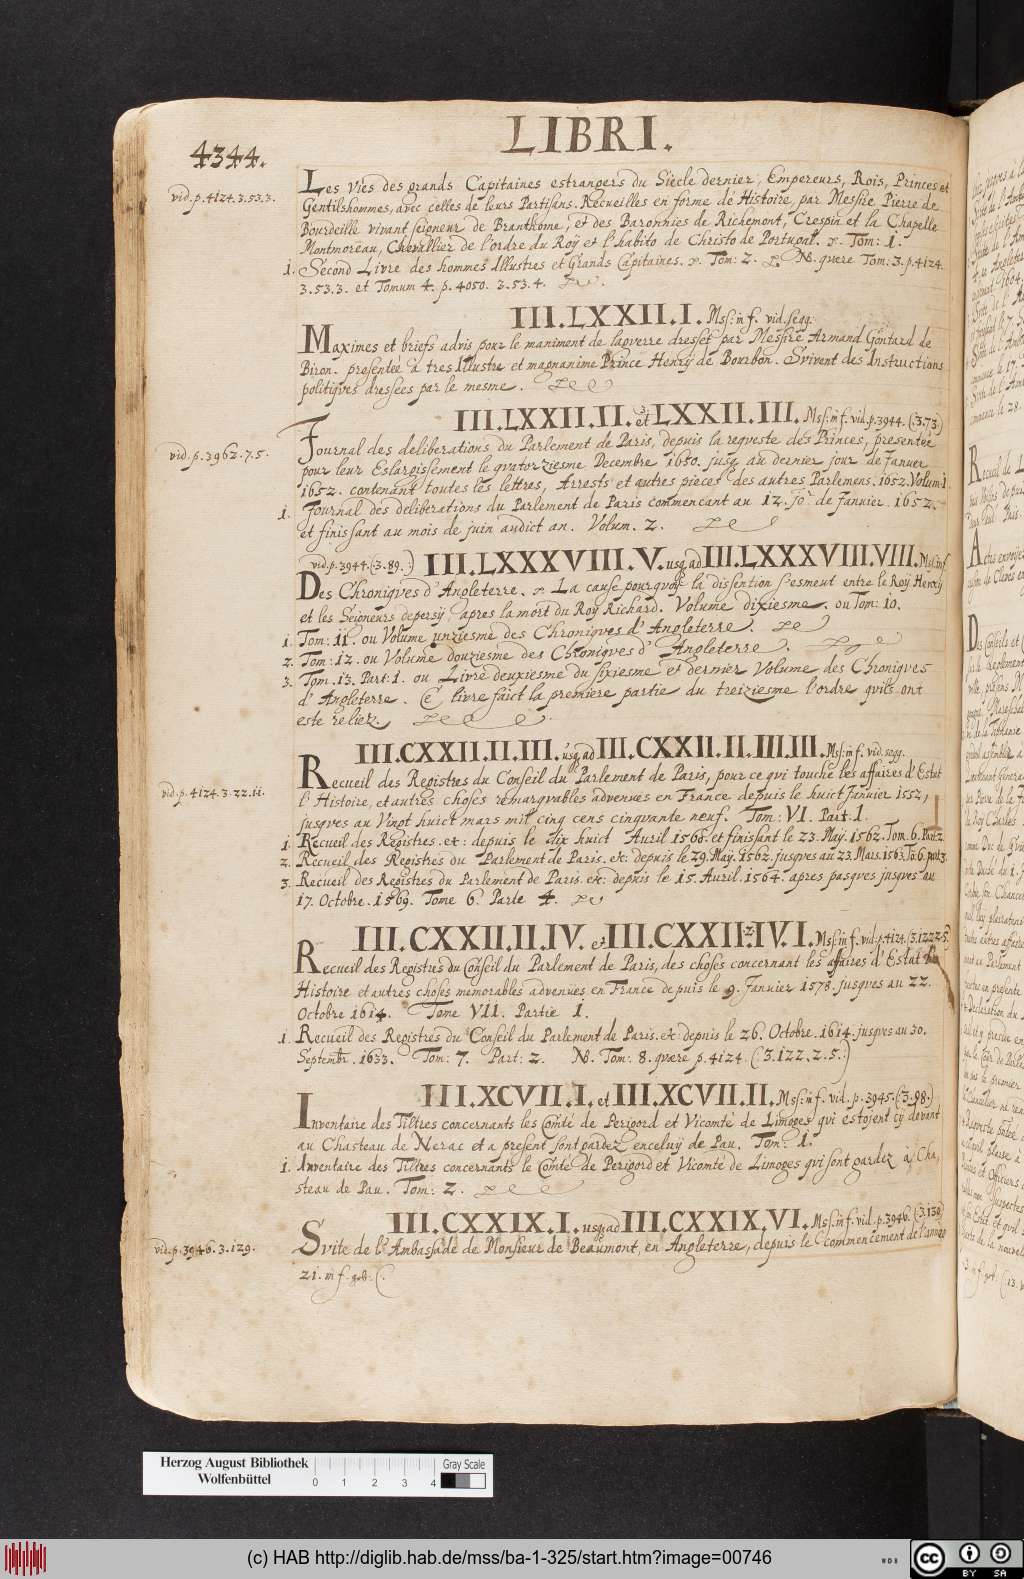 LIBRI.
4344.
vid. p. 4124. 3. 53. 3.
Les Vies des grands Capitaines estrangers du Siecle dernier, Empereurs, Rois, Princes et
Gentilshommes, avec celles de leurs Partisans. Recueilles en forme de Histoire, par Messire Pierre de
Bourdeille vivant seigneur de Branthome, et des Baronnies de Richemont, Crespin et la Chapelle
Montmoreau, Chevallier de l'ordre du Roÿ et l'habito de Christo de Portugal. Tom: 1.
1. Second Livre des hommes Illustres et Grands Capitaines. Tom: 2. NB. quere Tom: 3. p. 4124.
3. 53. 3. et Tomum 4. p. 4050. 3. 53. 4.
III. LXXII. I. Mss: in f. vid. seqq.
Maximes et briefs advis pour le maniment de laguerre dressés par Messire Armand Gontard de
Biron. presentée à tres Illustre et magnanime Prince Henrÿ de Bourbon. Svivent des Instructions
politiqves dressées par le mesme.
III. LXXII. II. et LXXII. III. Mss: in f. vid. p. 3944. (3. 73.)
vid. p. 3962. 7. 5.
Journal des deliberations du Parlement de Paris, depuis la reqveste des Princes, presentée
pour leur Eslargissement le qvatorziesme Decembre 1650. jusq au dernier jour de Januer
1652. contenant toutes les lettres, Arrests et autres pieces des autres Parlemens. 1652. Volum. 1
1. Journal des deliberations du Parlement de Paris commencant au 12. jor. de Januier 1652.
et finissant au mois de juin audict an. Volum. 2.
vid. p. 3944. (3. 89.) III. LXXXVIII. V. usq ad III. LXXXVIII. VIII. Mss: in f.
Des Chroniqves d'Angleterre. La cause pourqvoy la dissention s'esmeut entre le Roÿ Henrÿ
et les Seigneurs depersÿ, apres la mort du Roy Richard. Volume dixiesme. ou Tom: 10.
1. Tom: 11. ou Volume unziesme des Chroniqves d'Angleterre.
2. Tom: 12. ou Volume douziesme des Chroniqves d'Angleterre.
3. Tom. 13. Part: 1. ou Livre deuxiesme du sixiesme et dernier Volume des Chroniqves
d'Angleterre. Ce livre faict la premiere partie du treiziesme l'ordre qvils ont
este reliez.
III. CXXII. II. III. usq ad III. CXXII. II. IIII. III. Mss: in f. vid. seqq.
vid. p. 4124. 3. 22. 11.
Recueil des Registres du Conseil du Parlement de Paris, pour ce qvi touche les affaires d'Estat
l'Histoire, et autres choses remarqvables advenues en France depuis le huict Janvier 1552,
jusqves au Vingt huict mars mil cinq cens cinqvante neuf. Tom: VI. Part: 1.
1. Recueil des Registres. etc: depuis le dix huict Auril 1560. et finissant le 23. Maÿ. 1562. Tom. 6. Part: 2.
2. Recueil des Registres du Parlement de Paris. etc: depuis le 29. Maÿ. 1562. jusqves au 23. Mars. 1563. To: 6. part 3.
3. Recueil des Registres du Parlement de Paris. etc: depuis le 15. Auril. 1564. apres pasqves jusqves au
17. Octobre. 1569. Tome 6. Parte 4.
III. CXXII. II. IV. et III. CXXII. 2. IV. I. Mss: in f. vid. p. 4124. (3. 122. 2. 5.)
Recueil des Registres du Conseil du Parlement de Paris, des choses concernant les affaires d'Estat
Histoire et autres choses memorables advenues en France depuis le 9. Januier 1578. jusqves au 22.
Octobre 1614. Tome VII. Partie 1.
1. Recueil des Registres du Conseil du Parlement de Paris. etc: depuis le 26. Octobre. 1614. jusqves au 30.
Septembr. 1633. Tom: 7. Part: 2. NB. Tom: 8. quere p. 4124. (3. 122. 2. 5.)
III. XCVII. I. et III. XCVII. II. Mss: in f. vid. p. 3945. (3. 98.)
Inventaire des Tiltres concernants les Comté de Perigord et Vicomté de Limoges qvi estojent cÿ devant
au Chasteau de Nerac et a present sont gardez enceluÿ de Pau. Tom: 1.
1. Inventaire des Tiltres concernants le Comte de Perigord et Vicomté de Limoges qvi sont gardez à Cha-
steau de Pau. Tom: 2.
III. CXXIX. I. usq ad III. CXXIX. VI. Mss: in f. vid. p. 3946. (3. 130)
vid. p. 3946. 3. 129.
Svite de l'Ambassade de Monsieur de Beaumont, en Angleterre, depuis le commencement de l'année
21. in f. geb: (.
Herzog August Bibliothek
Wolfenbüttel
0 1 2 3 4
Gray Scale
(c) HAB http://diglib.hab.de/mss/ba-1-325/start.htm?image=00746
WDB
cc
BY SA